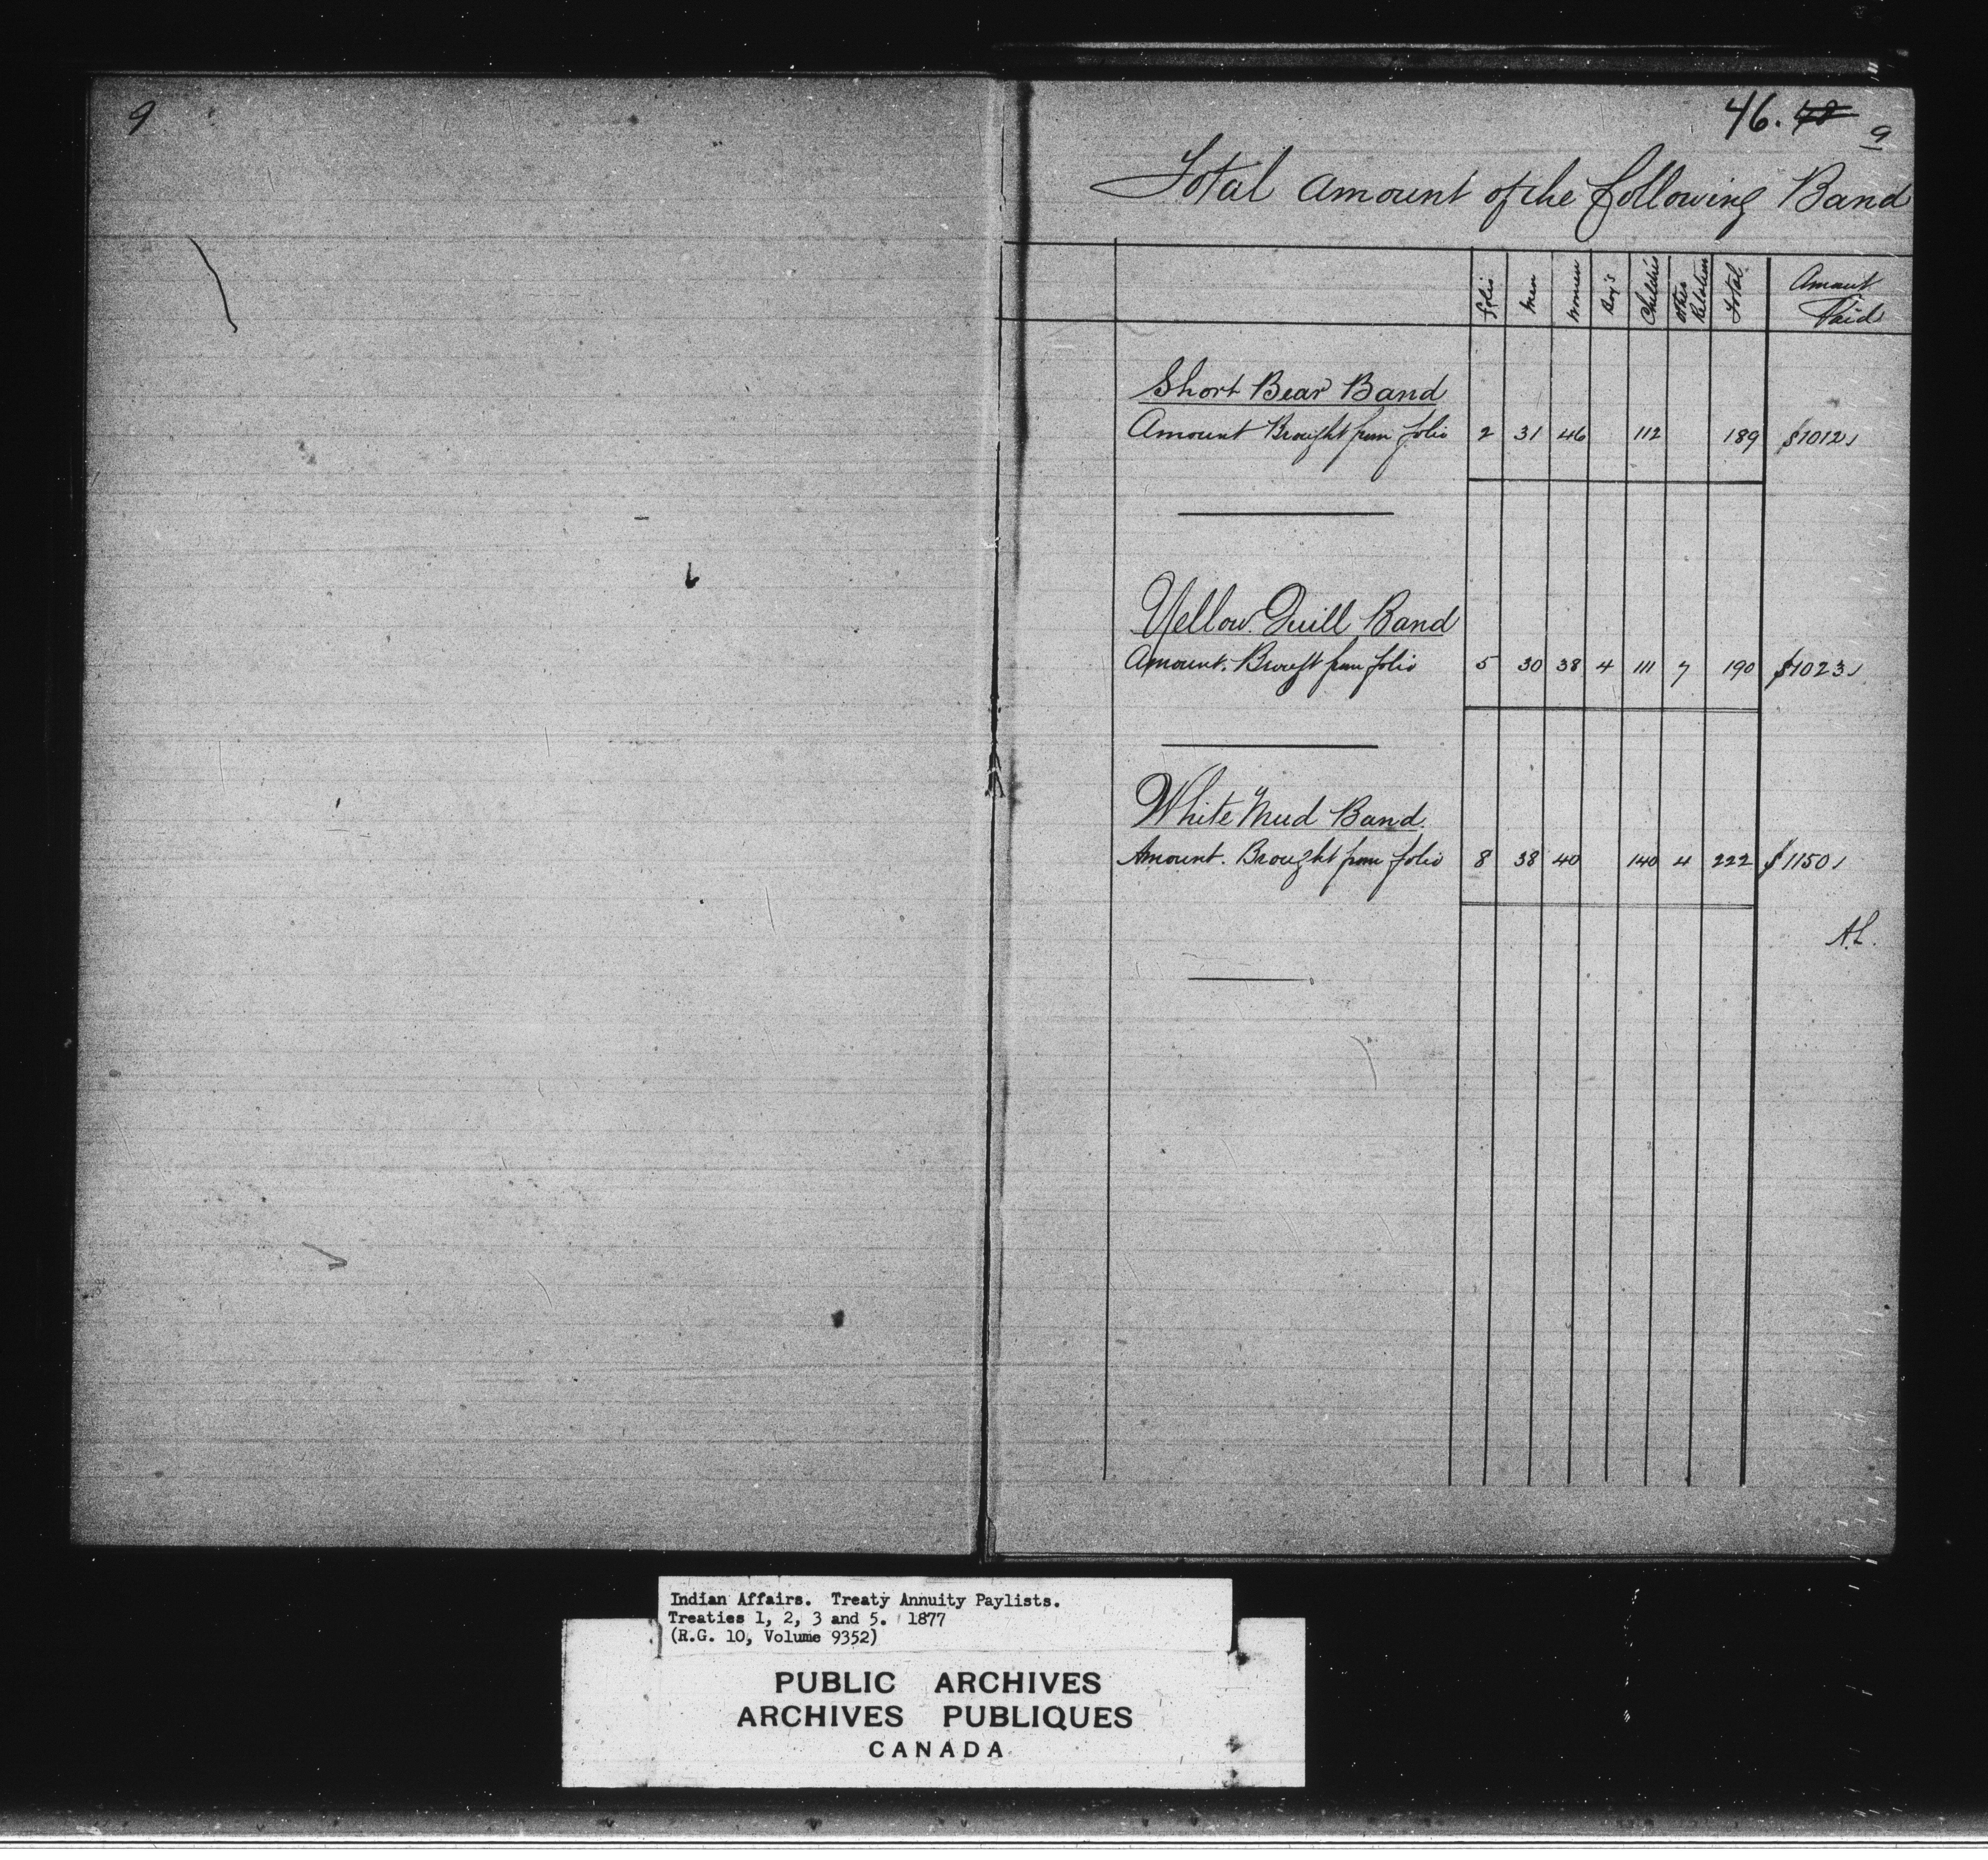 9
46. 48 9
Total amount of the following Band
folio Men Women Boy's Children Other Relation Total Amount Paid
Short Bear Band
Amount Brought from folio 2 31 46 112 189 $1012
Yellow Quill Band
Amount. Brought from folio 5 30 38 4 111 7 190 $1023
White Mud Band.
Amount. Brought from folio 8 38 40 140 4 222 $1150
Indian Affairs. Treaty Annuity Paylists.
Treaties 1, 2, 3 and 5. 1877
(R.G. 10, Volume 9352)
PUBLIC ARCHIVES
ARCHIVES PUBLIQUES
CANADA